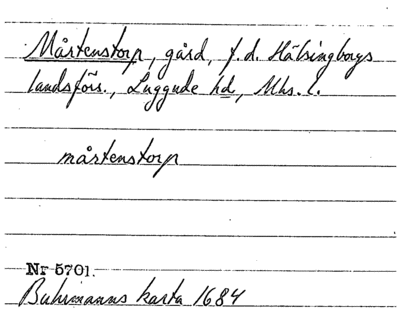 Mårtenstorp, gård, f.d. Hälsingborgs
landsförs., Luggude hd, Mhs. l.
mårtenstorp
Nr 5701.
Buhrmanns karta 1684